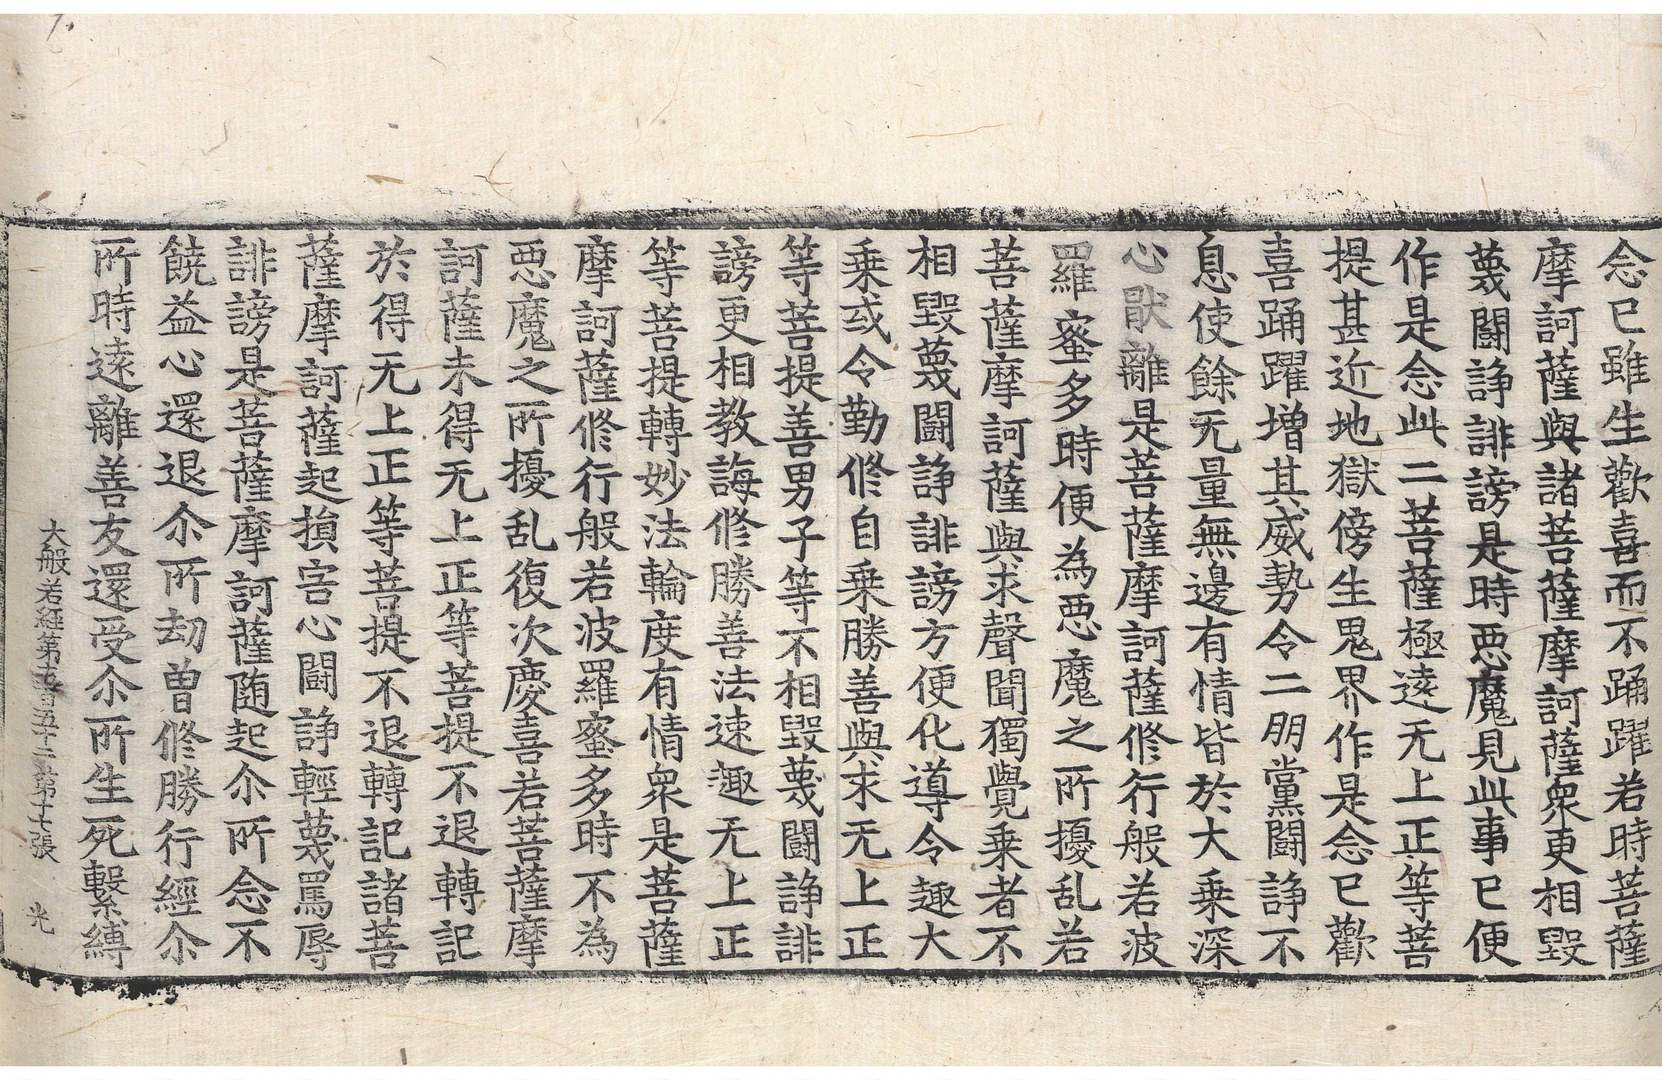 念已雖生歡喜而不踊躍若時菩薩
摩訶薩與諸菩薩摩訶薩衆更相毀
蔑闘諍誹謗是時惡魔見此事已便
作是念此二菩薩極遠无上正等菩
提甚近地獄傍生鬼界作是念已歡
喜踊躍增其威勢令二朋黨闘諍不
息使餘无量無邊有情皆於大乘深
心猒離是菩薩摩訶薩修行般若波
羅蜜多時便為惡魔之所擾乱若
菩薩摩訶薩與求聲聞獨覺乘者不
相毀蔑闘諍誹謗方便化導令趣大
乘或令勤修自乘勝善與求无上正
等菩提善男子等不相毀蔑闘諍誹
謗更相教誨修勝善法速趣无上正
等菩提轉妙法輪度有情衆是菩薩
摩訶薩修行般若波羅蜜多時不為
惡魔之所擾乱復次慶喜若菩薩摩
訶薩未得无上正等菩提不退轉記
於得无上正等菩提不退轉記諸菩
薩摩訶薩起損害心闘諍輕蔑罵辱
誹謗是菩薩摩訶薩随起尒所念不
饒益心還退尒所劫曾修勝行經尒
所時遠離善友還受尒所生死繫縛
大般若経第五百五十二 第十七張 光